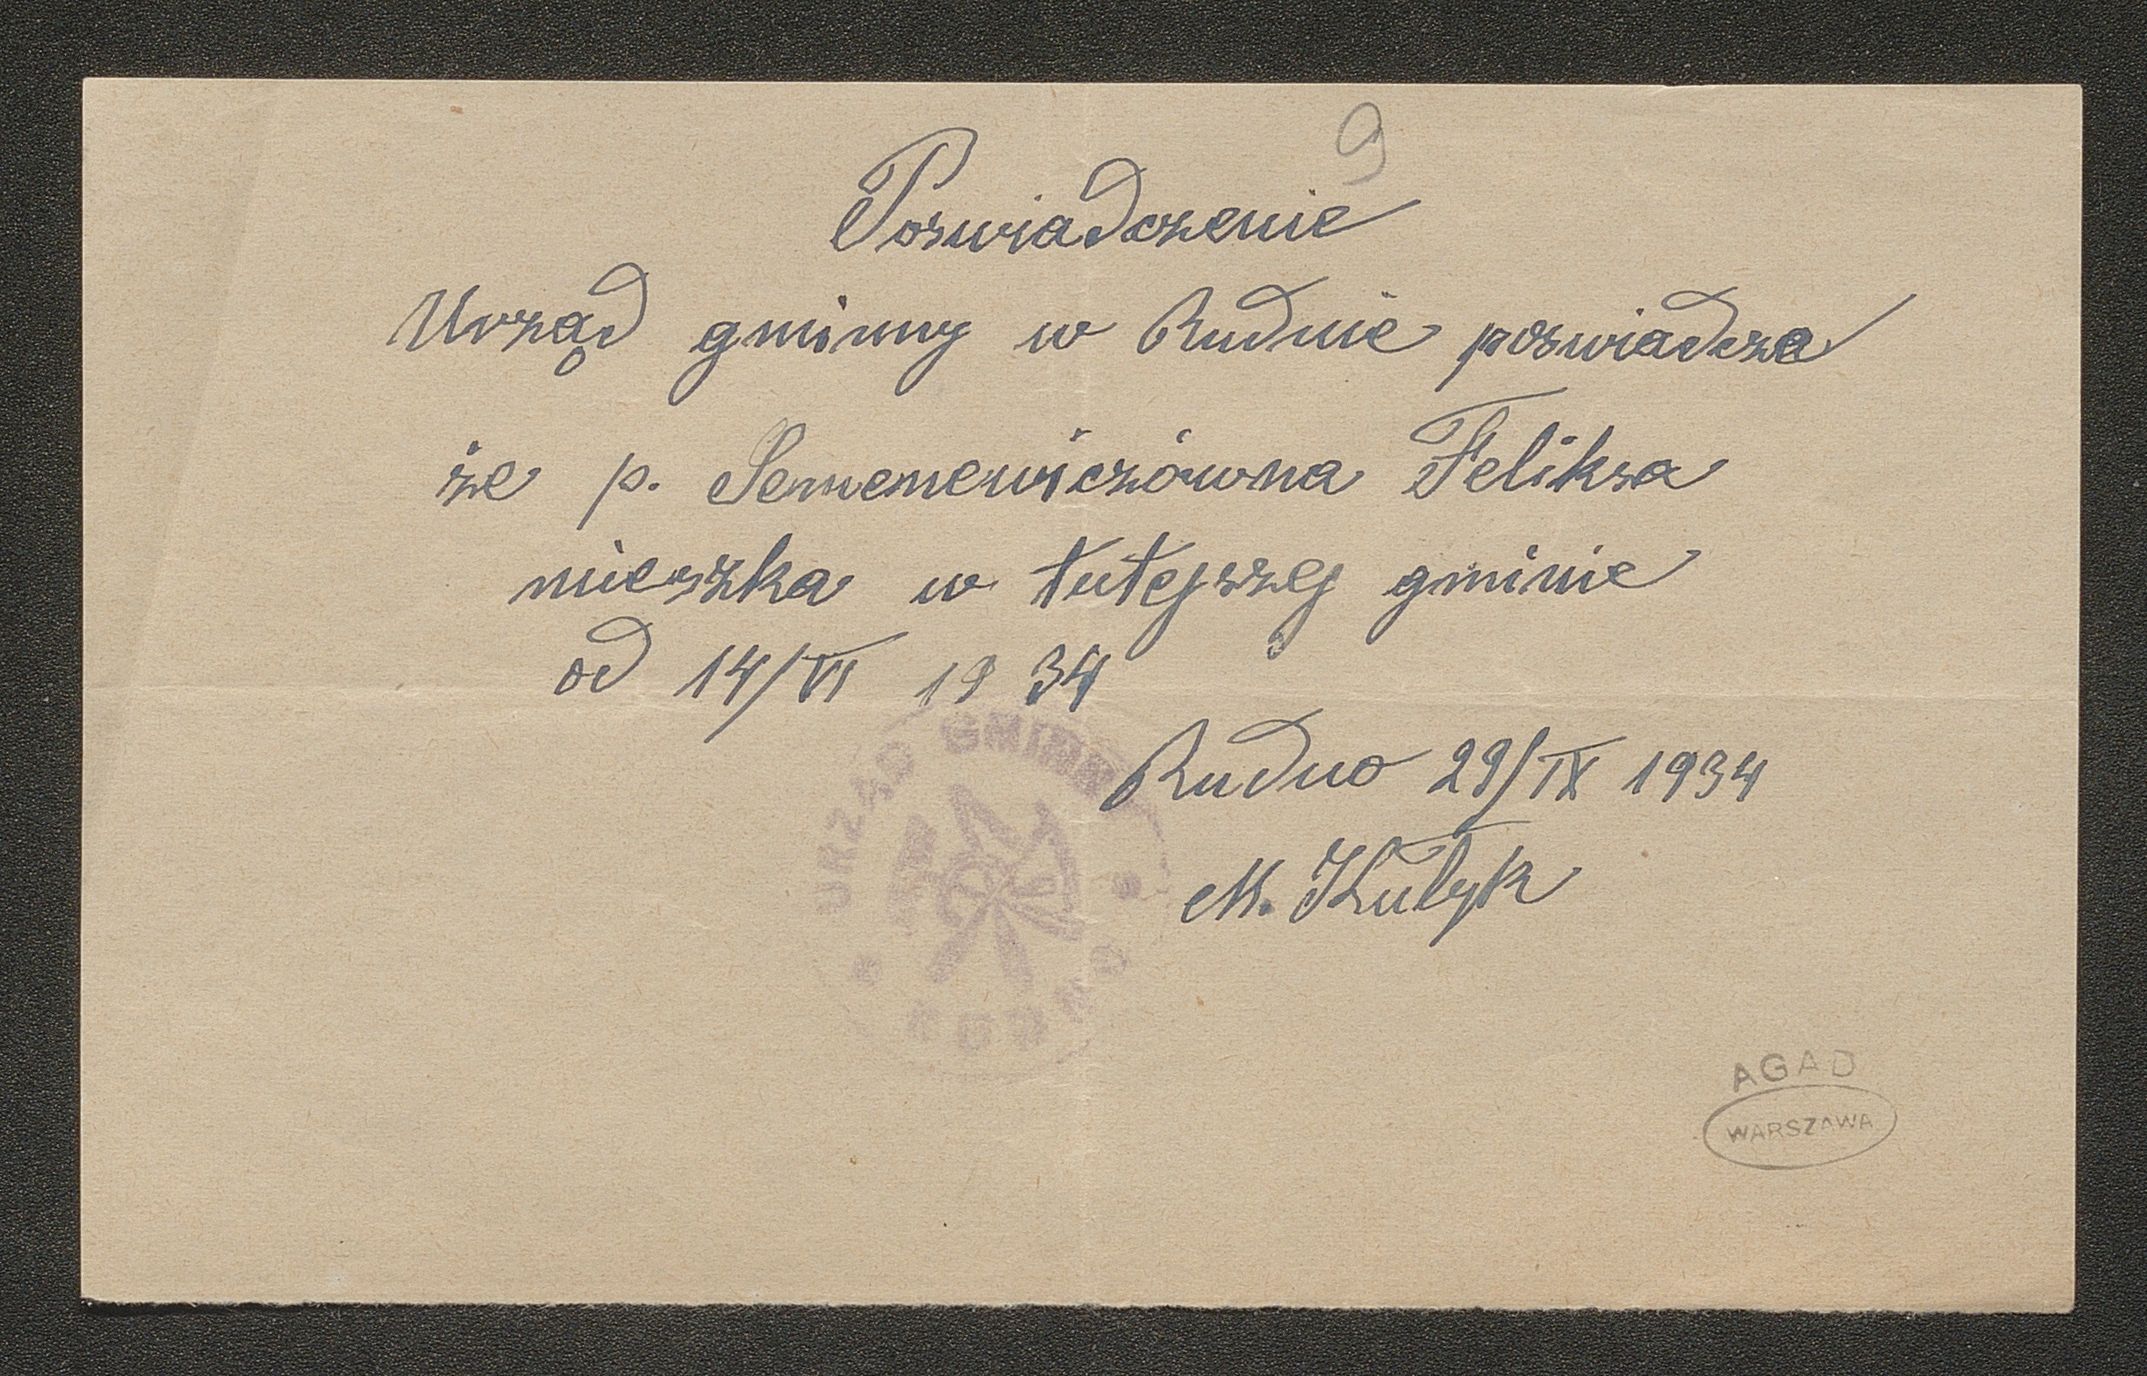 9
Poswiadczenie
Urząd gminny w Rudnie poswiadcza
że p. Semenewiczówna Feliksa
mieszka w tutejszej gminie
od 14/VI 1934
Rudno 29/IX 1934
M. Kułyk
URZĄD GMINNY
AGAD
WARSZAWA